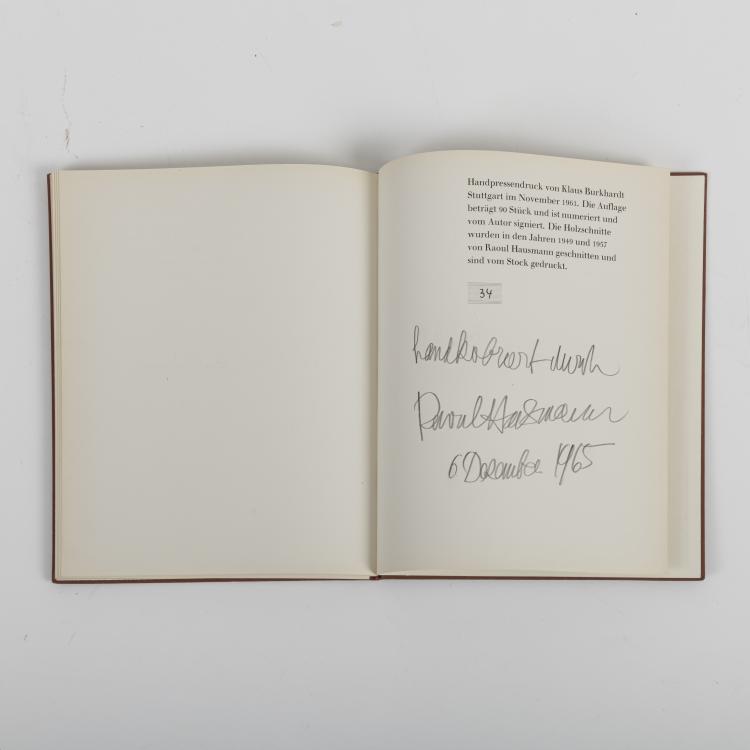 Handpressendruck von Klaus Burkhardt
Stuttgart im November 1961. Die Auflage
beträgt 90 Stück und ist numeriert und
vom Autor signiert. Die Holzschnitte
wurden in den Jahren 1949 und 1957
von Raoul Hausmann geschnitten und
sind vom Stock gedruckt.
34
handkoloriert durch
Raoul Hausmann
6 Dezember 1965